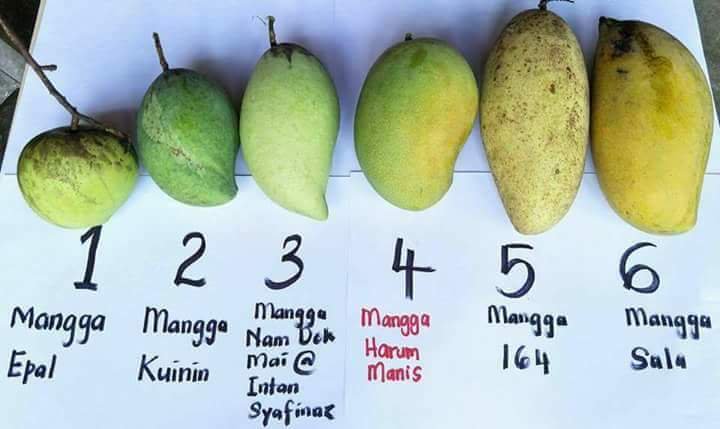 1
Mangga
Epal
2
Mangga
Kuinin
3
Mangga
Nam Dok
Mai @
Intan
Syafinaz
4
Mangga
Harum
Manis
5
Mangga
164
6
Mangga
Sala